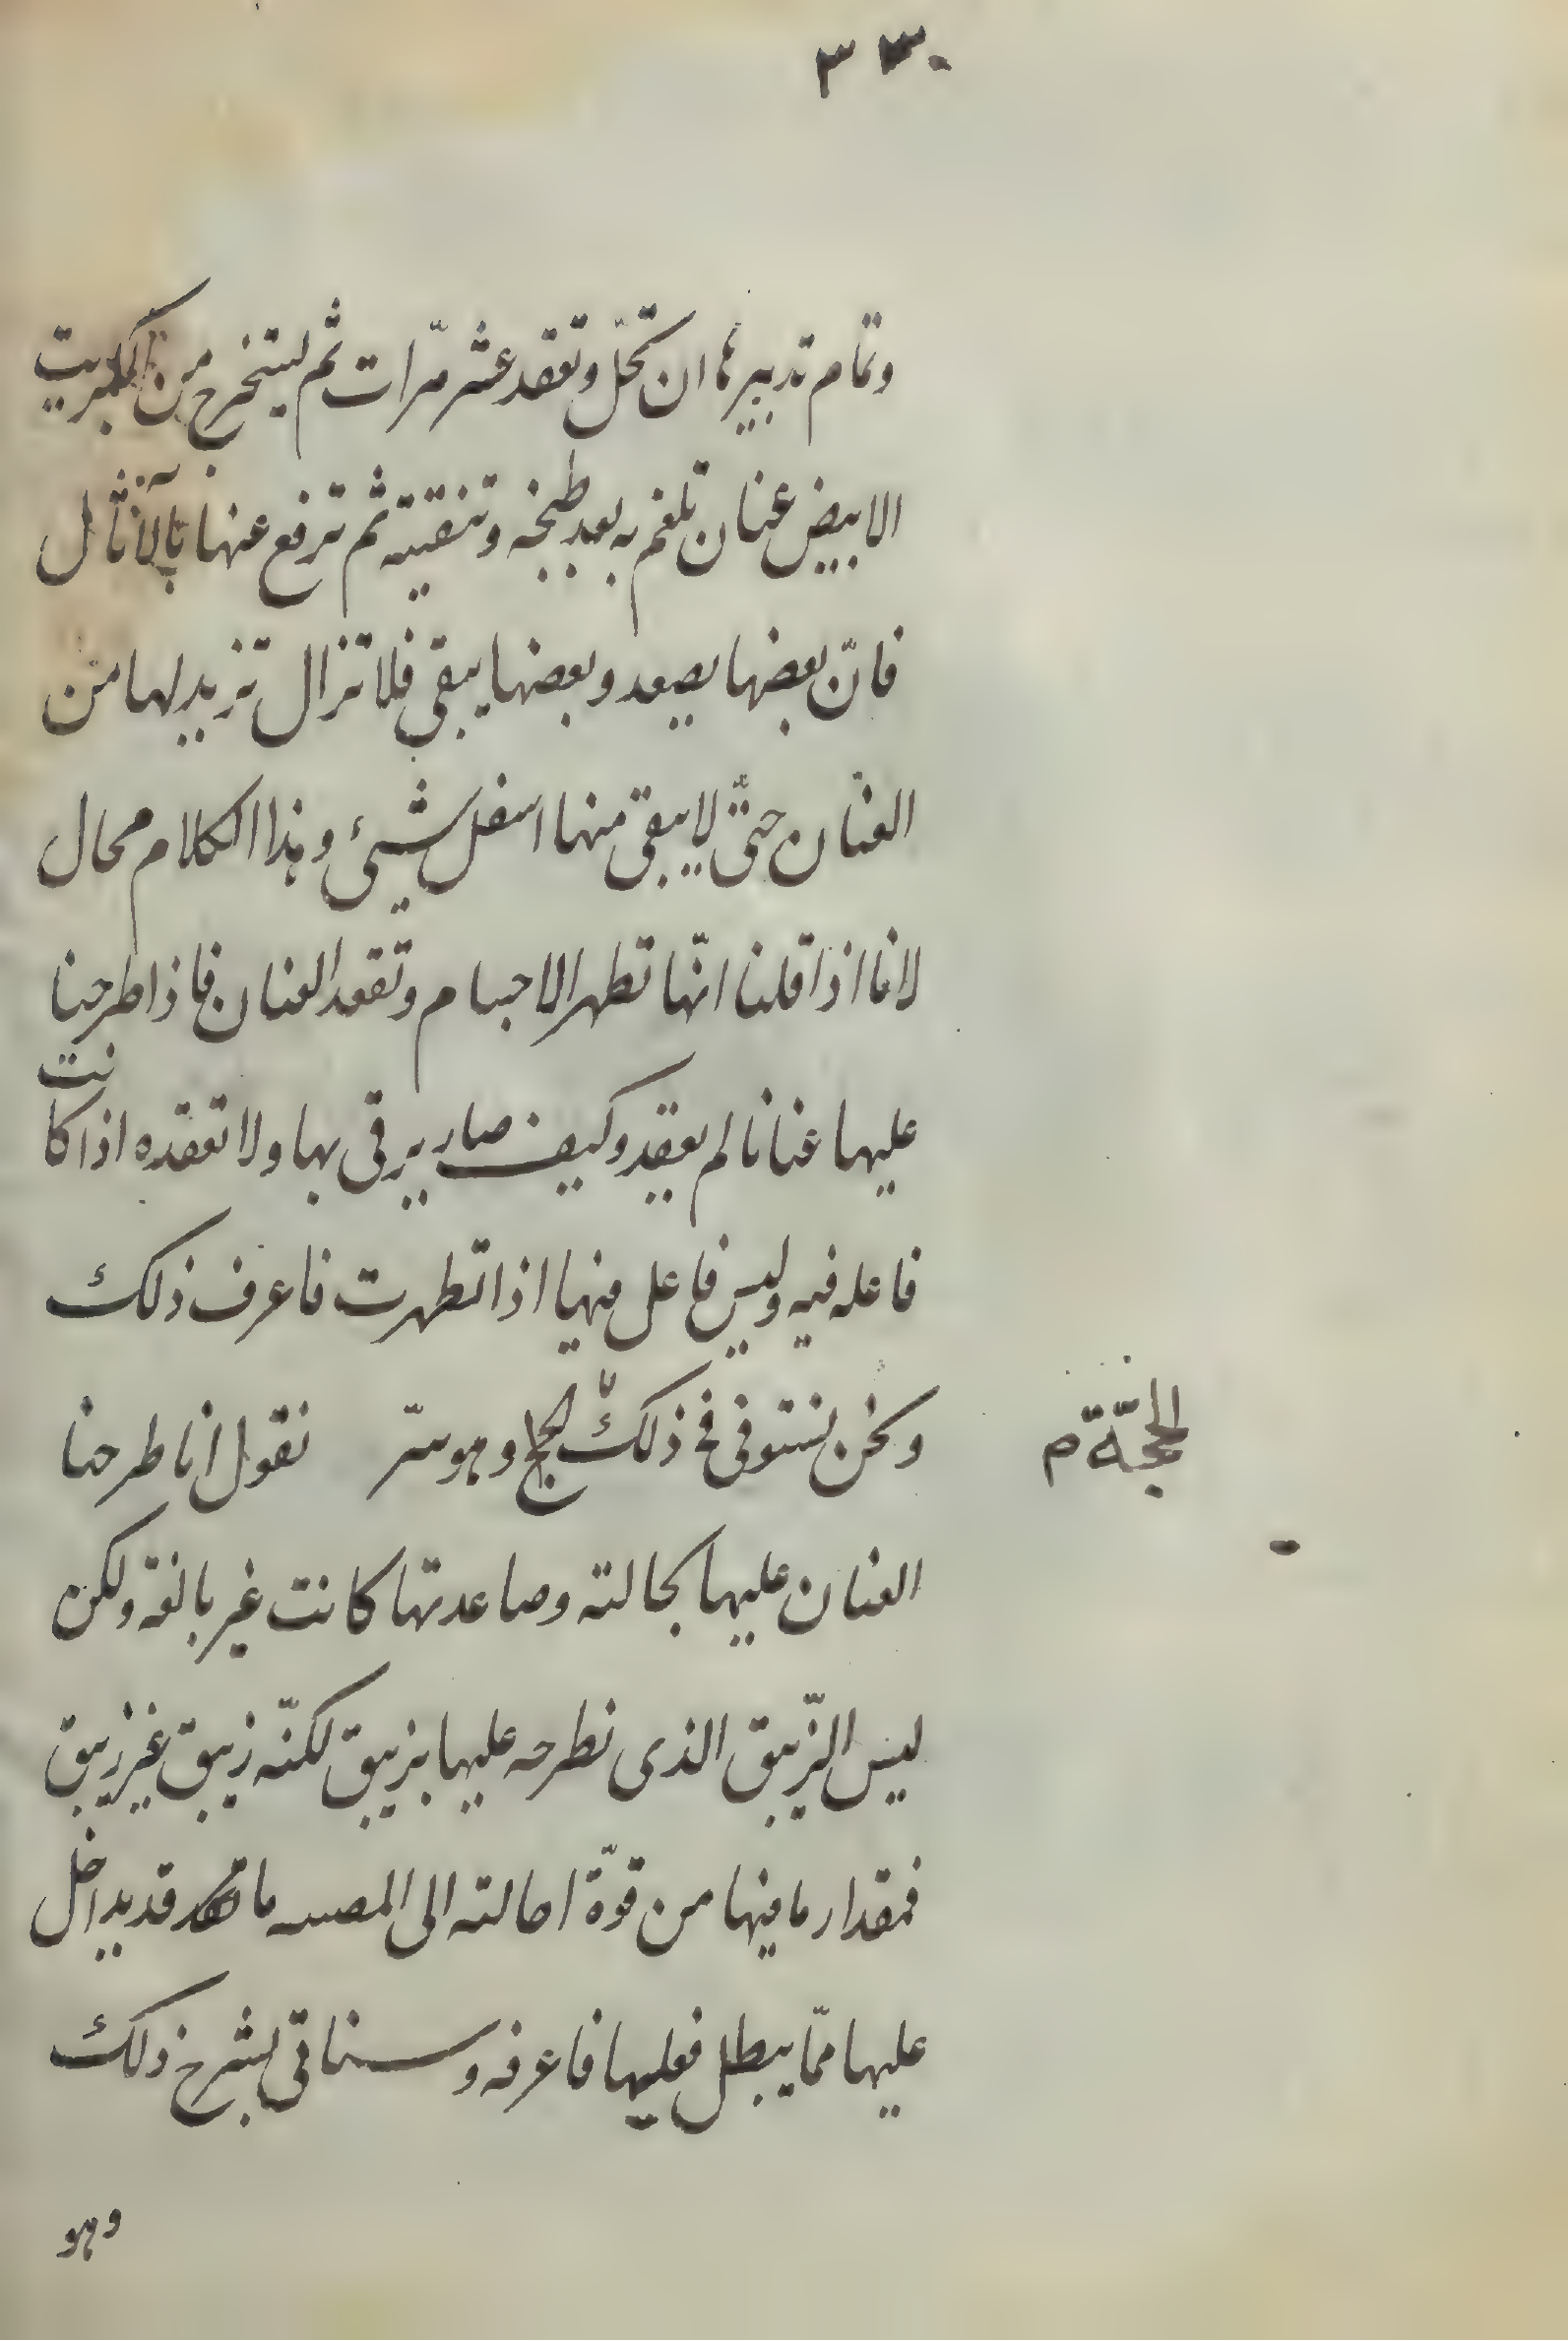 ٣٣٠
وتمام تدبيرها ان تحلّ وتعقد عشر مرّات ثم يستخرج من الكبريت
الابيض عنان تلغم به بعد طبخه وتنقيته ثم ترفع عنها بالآثال
فانّ بعضها يصعد وبعضها يبقى فلا تزال تزيد لها من
العنان حتّى لا يبقى منها اسفل شيئ وهذا الكلام محال
لانا اذا قلنا انّها تطهر الاجسام وتقعد العنان فاذا طرحنا
عليها عنانا لم يعقد وكيف صار يرقى بها ولا تعقده اذا كانت
فاعله فيه وليس فاعل منها اذا تطهرت فاعرف ذلك
ونحن نستوفى فى ذلك الحج وهو سرّ نقول انا طرحنا
الحجّة م
العنان عليها بحالته وصاعدتها كانت غير بالغة ولكن
ليس الزّيبق الذى نطرحه عليها بزيبق لكنّه زيبق غير زيبق
فمقدار ما فيها من قوّة احالته الى ما قد يداخل
عليها ممّا يبطل فعليها فاعرفه وسناتى بشرح ذلك
وهو